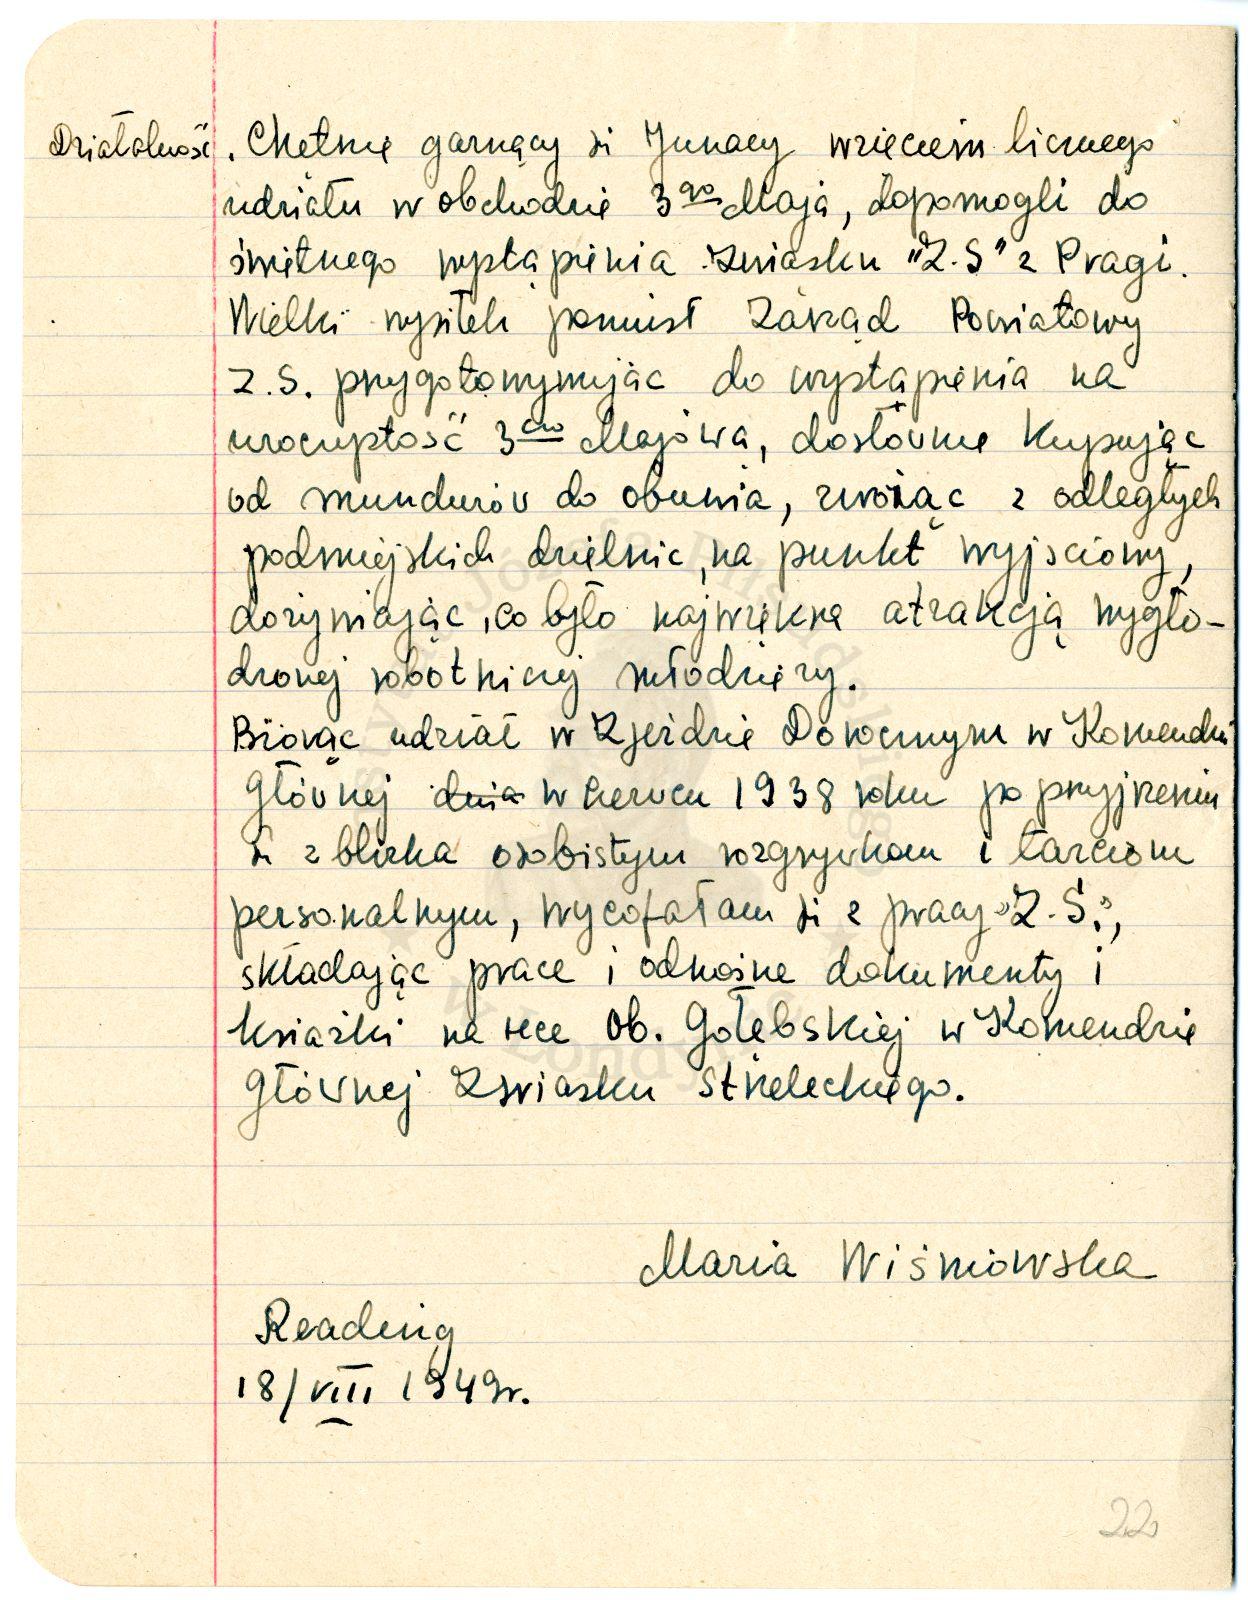 Działalność. Chętnie garnący si Junacy wzięciem licznego
udziału w obchodzie 3go Maja, dopomogli do
świetnego wystąpienia Zwiasku "Z.S" z Pragi.
Wielki wysiłek poniusł Zarząd Powiatowy
Z.S. przygotowywując do wystąpienia na
uroczystość 3cio Majowa, dosłownie kupując
od mundurów do obuwia, zwożąc z odległych
podmiejskich dzielnic, na punkt wyjsciowy,
dożywiając, co było najwiękrzą atrakcją wygło-
dzonej robotniczej młodzieży.
Biorąc udział w Zjeździe Dorocznym w Komendzie
Głównej dnia w czerwcu 1938 roku po przyjrzeniu
si z bliska osobistym rozgrywkom i tarciom
personalnym, wycofałam si z pracy "Z.S.",
składając prace i odnośne dokumenty i
ksiażki na ręce Ob. Gołębskiej w Komendzie
Głównej Zwiasku Strzeleckiego.
Maria Wiśniowska
Reading
18/VIII 1949r.
22
Muzeum Józefa Piłsudskiego
w Londynie